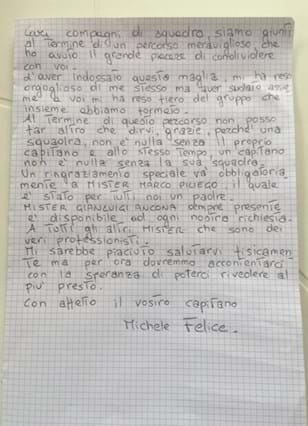 Cari compagni di squadra, siamo giunti
al Termine di un percorso meraviglioso, che
ho avuto il grande piacere di condividere
con voi.
d'aver indossato questa maglia, mi ha reso
orgoglioso di me stesso ma aver sudato assie
me a voi mi ha reso fiero del gruppo che
insieme abbiamo formato.
Al Termine di questo percorso non posso
far altro che dirvi, grazie, perche' una
squadra, non e' nulla senza il proprio
capitano e allo stesso Tempo, un capitano
non e' nulla senza la sua squadra.
Un ringraziamento speciale va obbligatoria
mente a MISTER MARCO PILIEGO, il quale
e' stato per tutti noi un padre.
MISTER GIANLUIGI ANCONA sempre presente
e' disponibile ad ogni nostra richiesta.
A Tutti gli altri MISTER che sono dei
veri professionisti.
Mi sarebbe piaciuto salutarvi fisicamen
Te ma per ora dovremmo accontentarci
con la speranza di poterci rivedere al
piu' presto.
Con affetto il vostro capitano
Michele Felice.